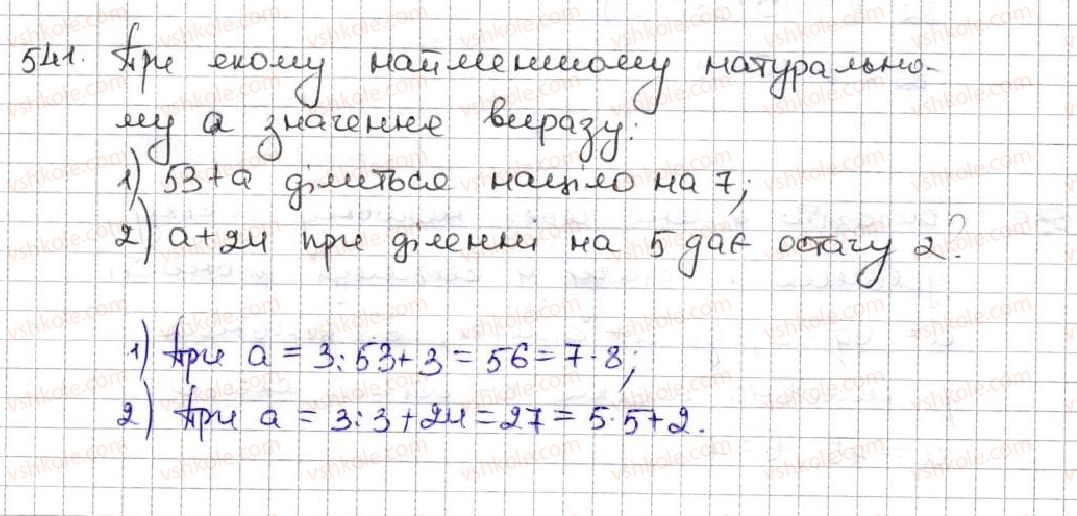 541. При якому найменшому натурально-
му a значення виразу:
1) 53+a ділиться націло на 7;
2) a+24 при діленні на 5 дає остачу 2?
1) При a = 3: 53+3 = 56 = 7·8;
2) При a = 3: 3+24 = 27 = 5·5+2.